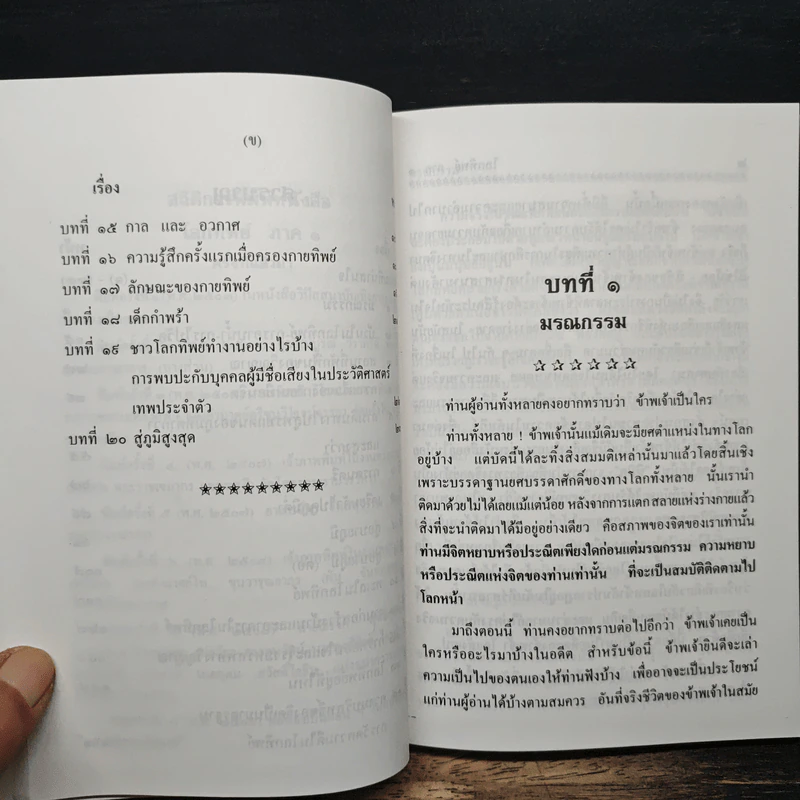 (ข)
เรื่อง
บทที่ ๑๕ กาล และ อวกาศ
บทที่ ๑๖ ความรู้สึกครั้งแรกเมื่อครองกายทิพย์
บทที่ ๑๗ ลักษณะของกายทิพย์
บทที่ ๑๘ เด็กกำพร้า
บทที่ ๑๙ ชาวโลกทิพย์ทำงานอย่างไรบ้าง
การพบปะกับบุคคลผู้มีชื่อเสียงในประวัติศาสตร์
เทพประจำตัว
บทที่ ๒๐ สู่ภูมิสูงสุด
บทที่ ๑
มรณกรรม
ท่านผู้อ่านทั้งหลายคงอยากทราบว่า ข้าพเจ้าเป็นใคร
ท่านทั้งหลาย ! ข้าพเจ้านั้นแม้เดิมจะมียศตำแหน่งในทางโลก
อยู่บ้าง แต่บัดนี้ได้ละทิ้งสิ่งสมมติเหล่านั้นมาแล้วโดยสิ้นเชิง
เพราะบรรดาฐานยศบรรดาศักดิ์ของทางโลกทั้งหลาย นั้นเรานำ
ติดมาด้วยไม่ได้เลยแม้แต่น้อย หลังจากการแตก สลายแห่งร่างกายแล้ว
สิ่งที่จะนำติดมาได้มีอยู่อย่างเดียว คือสภาพของจิตของเราเท่านั้น
ท่านมีจิตหยาบหรือประณีตเพียงใดก่อนแต่มรณกรรม ความหยาบ
หรือประณีตแห่งจิตของท่านเท่านั้น ที่จะเป็นสมบัติติดตามไป
โลกหน้า
มาถึงตอนนี้ ท่านคงอยากทราบต่อไปอีกว่า ข้าพเจ้าเคยเป็น
ใครหรืออะไรมาบ้างในอดีต สำหรับข้อนี้ ข้าพเจ้ายินดีจะเล่า
ความเป็นไปของตนเองให้ท่านฟังบ้าง เพื่ออาจจะเป็นประโยชน์
แก่ท่านผู้อ่านได้บ้างตามสมควร อันที่จริงชีวิตของข้าพเจ้าในสมัย